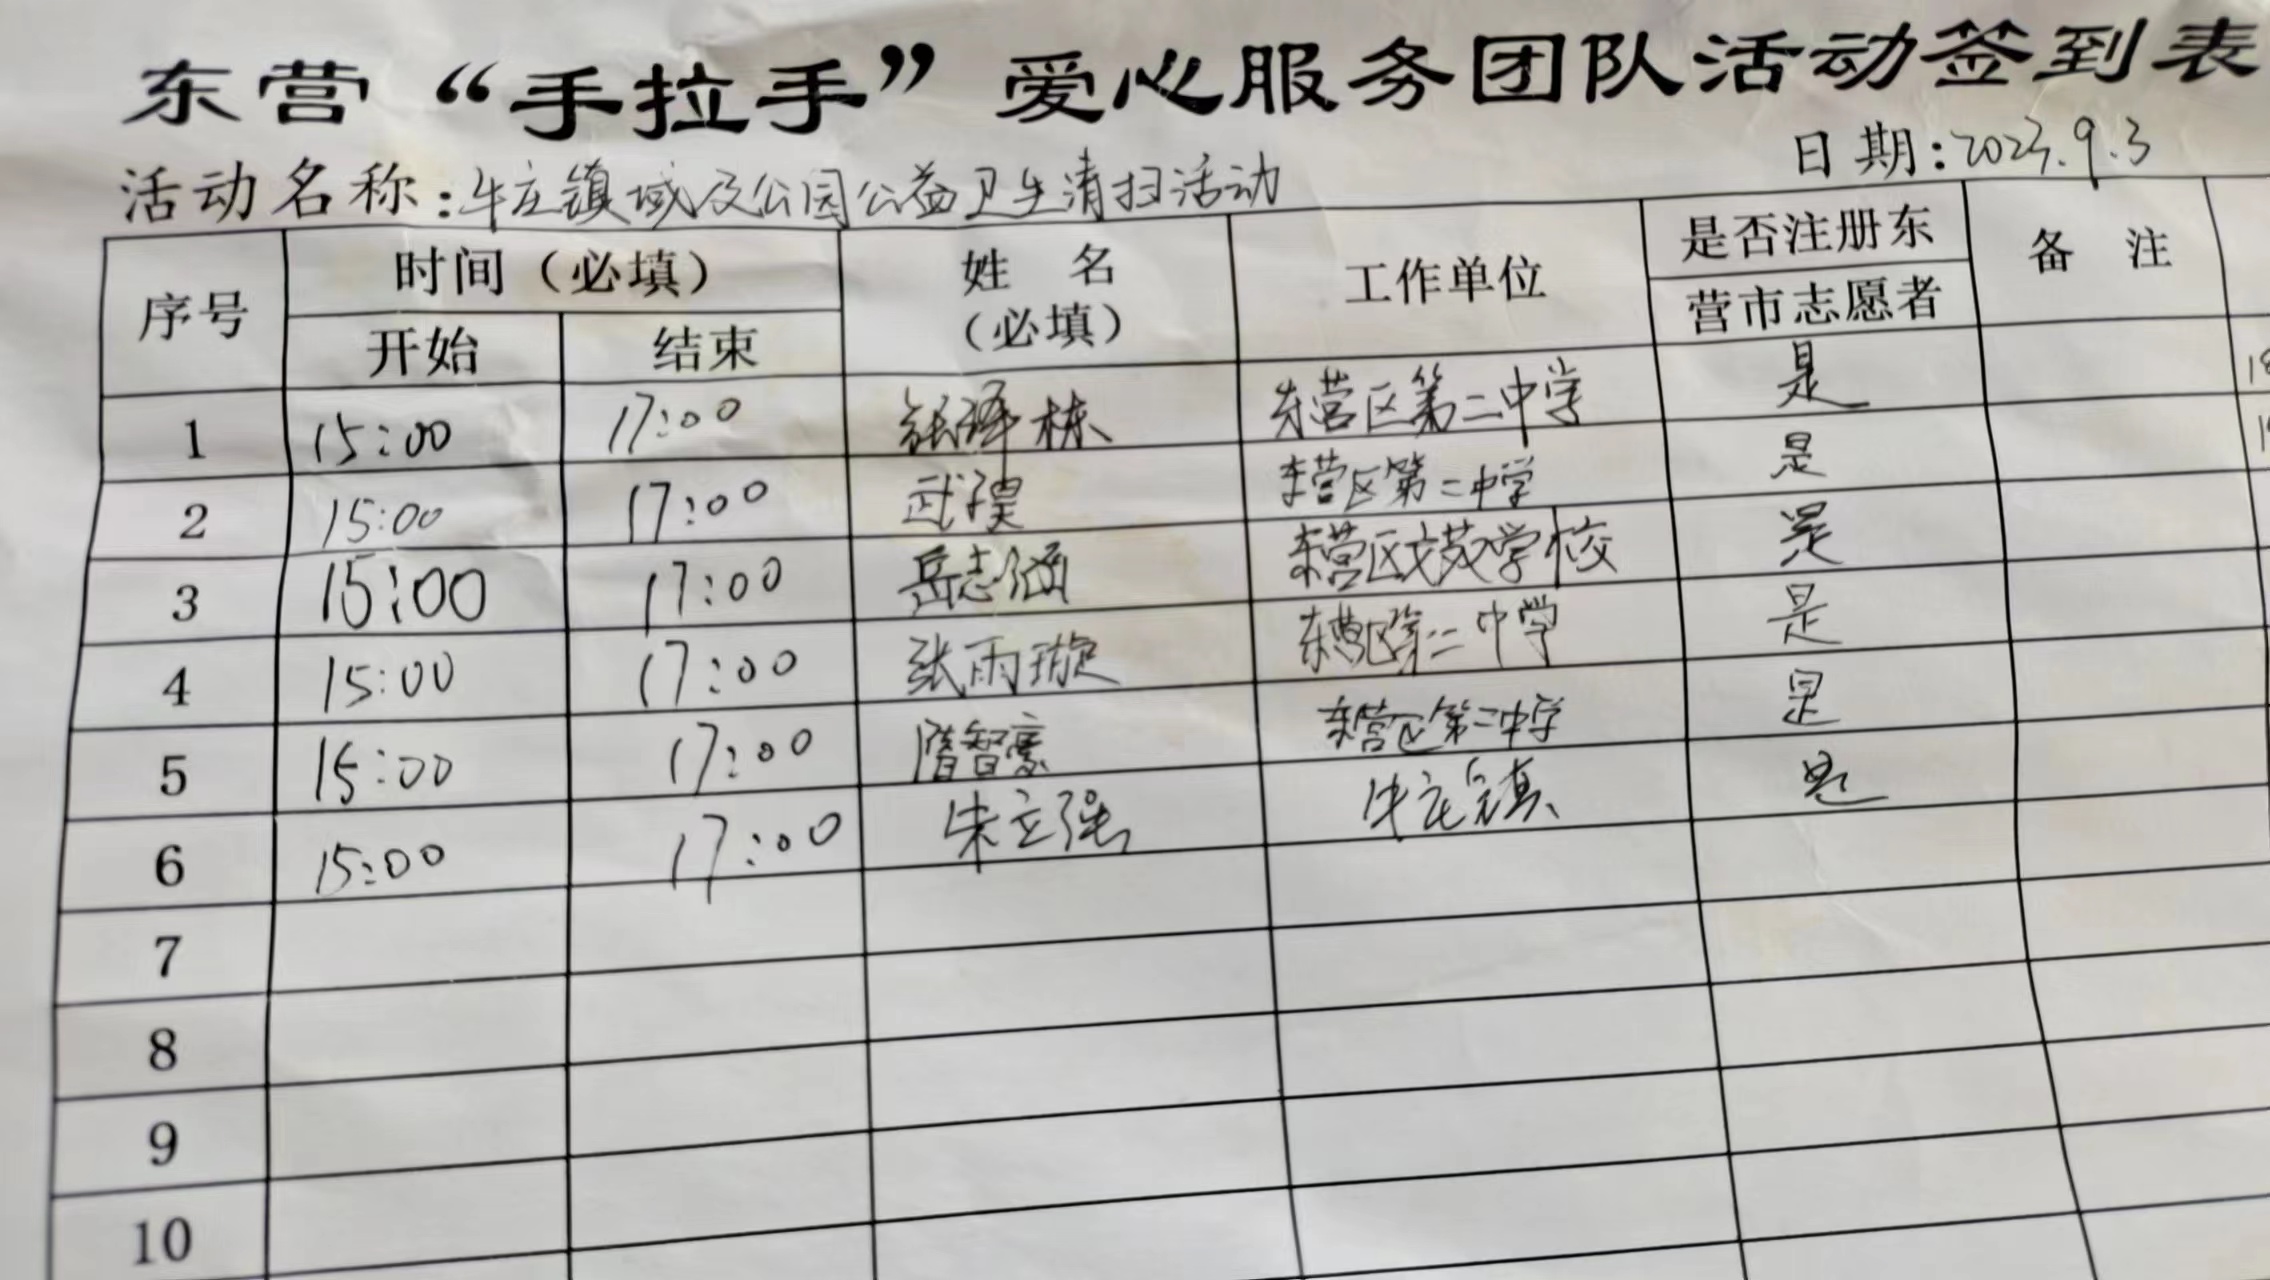 东营“手拉手”爱心服务团队活动签到表
日期:2023.9.3
活动名称:牛庄镇域及公园公益卫生清扫活动
序号 时间（必填） 姓名（必填） 工作单位 是否注册东营市志愿者 备注
开始 结束
1 15:00 17:00 张译栋 东营区第二中学 是
2 15:00 17:00 武琪昊 东营区第二中学 是
3 15:00 17:00 岳志涵 东营区文苑学校 是
4 15:00 17:00 张雨璇 东营区第二中学 是
5 15:00 17:00 隋智豪 东营区第二中学 是
6 15:00 17:00 朱立强 牛庄镇 是
7
8
9
10